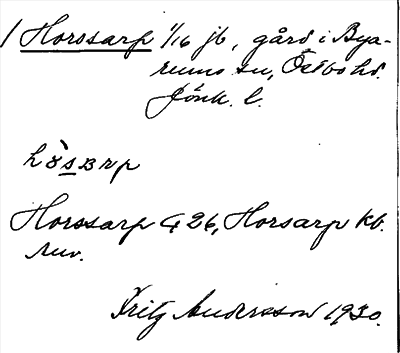 / Horssarp 1/16 jb, gård i Bya-
rums sn, Östbo hd.
Jönk. l.
Horssarp G 26, Horsarp kb.
nuv.
Fritz Andersson 1930.